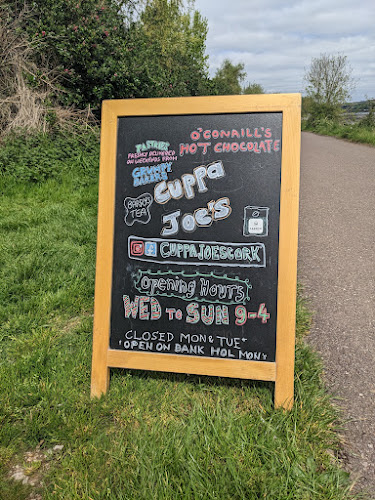 PASTRIES
FRESHLY DELIVERED
ON WEEKENDS FROM
GRUMPY
BAKERS
O'CONAILL'S
HOT CHOCOLATE
CUPPA
JOE'S
BARRY'S
TEA
CUPPAJOESCORK
OPENING HOURS
WED TO SUN 9-4
CLOSED MON & TUE*
*OPEN ON BANK HOL MON*